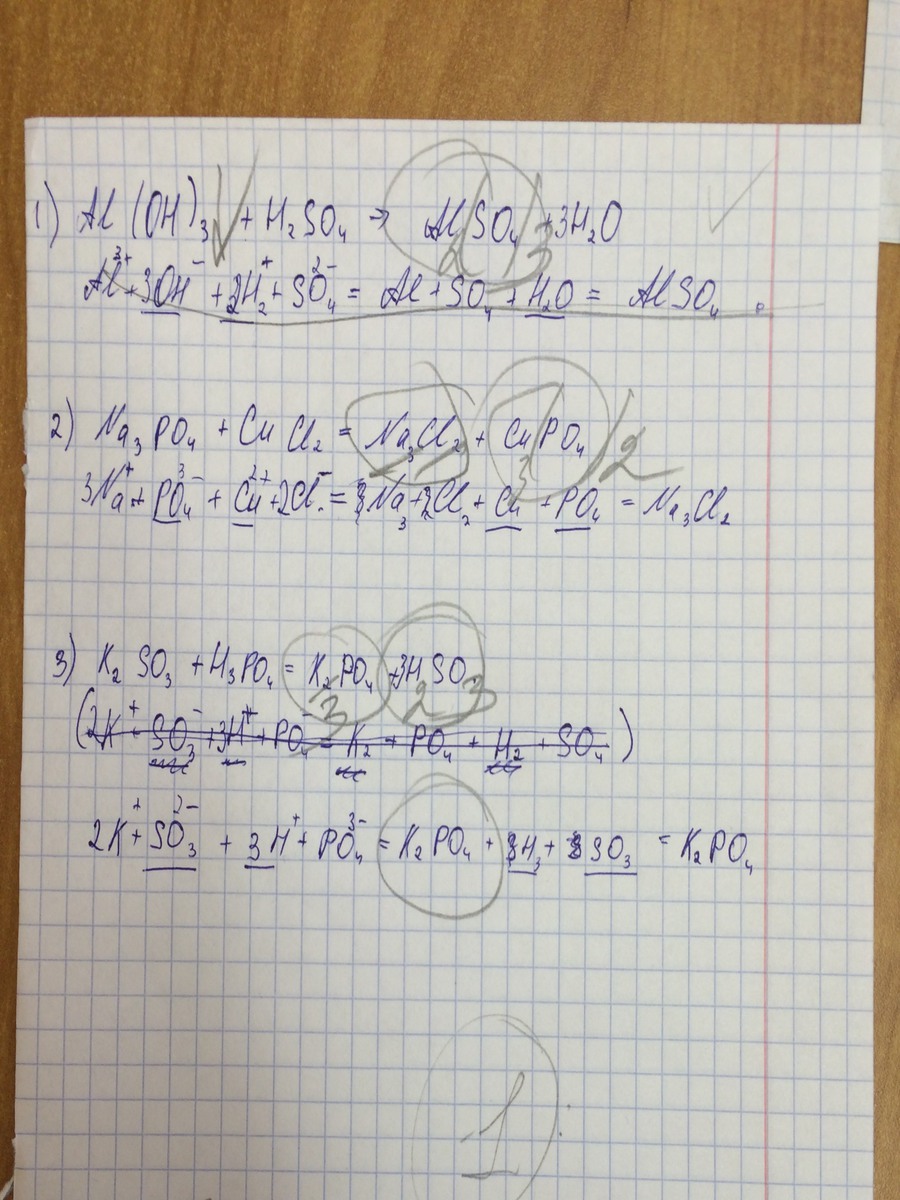 1) Al(OH)₃↓ + H₂SO₄ → Al₂(SO₄)₃ + 3H₂O
Al³⁺ + 3OH⁻ + 2H₂⁺ + SO₄²⁻ = Al + SO₄ + H₂O = AlSO₄.
2) Na₃PO₄ + CuCl₂ = Na₃Cl₂ + Cu₃(PO₄)₂
3Na⁺ + PO₄³⁻ + Cu²⁺ + 2Cl⁻ = 3Na₃ + 2Cl₂ + Cu + PO₄ = Na₃Cl₂
3) K₂SO₃ + H₃PO₄ = K₃PO₄ + 3H₂SO₃
(2K⁺ + SO₃⁻ + 3H⁺ + PO₄⁻ = K₂ + PO₄ + H₂ + SO₄)
2K⁺ + SO₃²⁻ + 3H⁺ + PO₄³⁻ = K₂PO₄ + 3H₃ + SO₃ = K₂PO₄
1